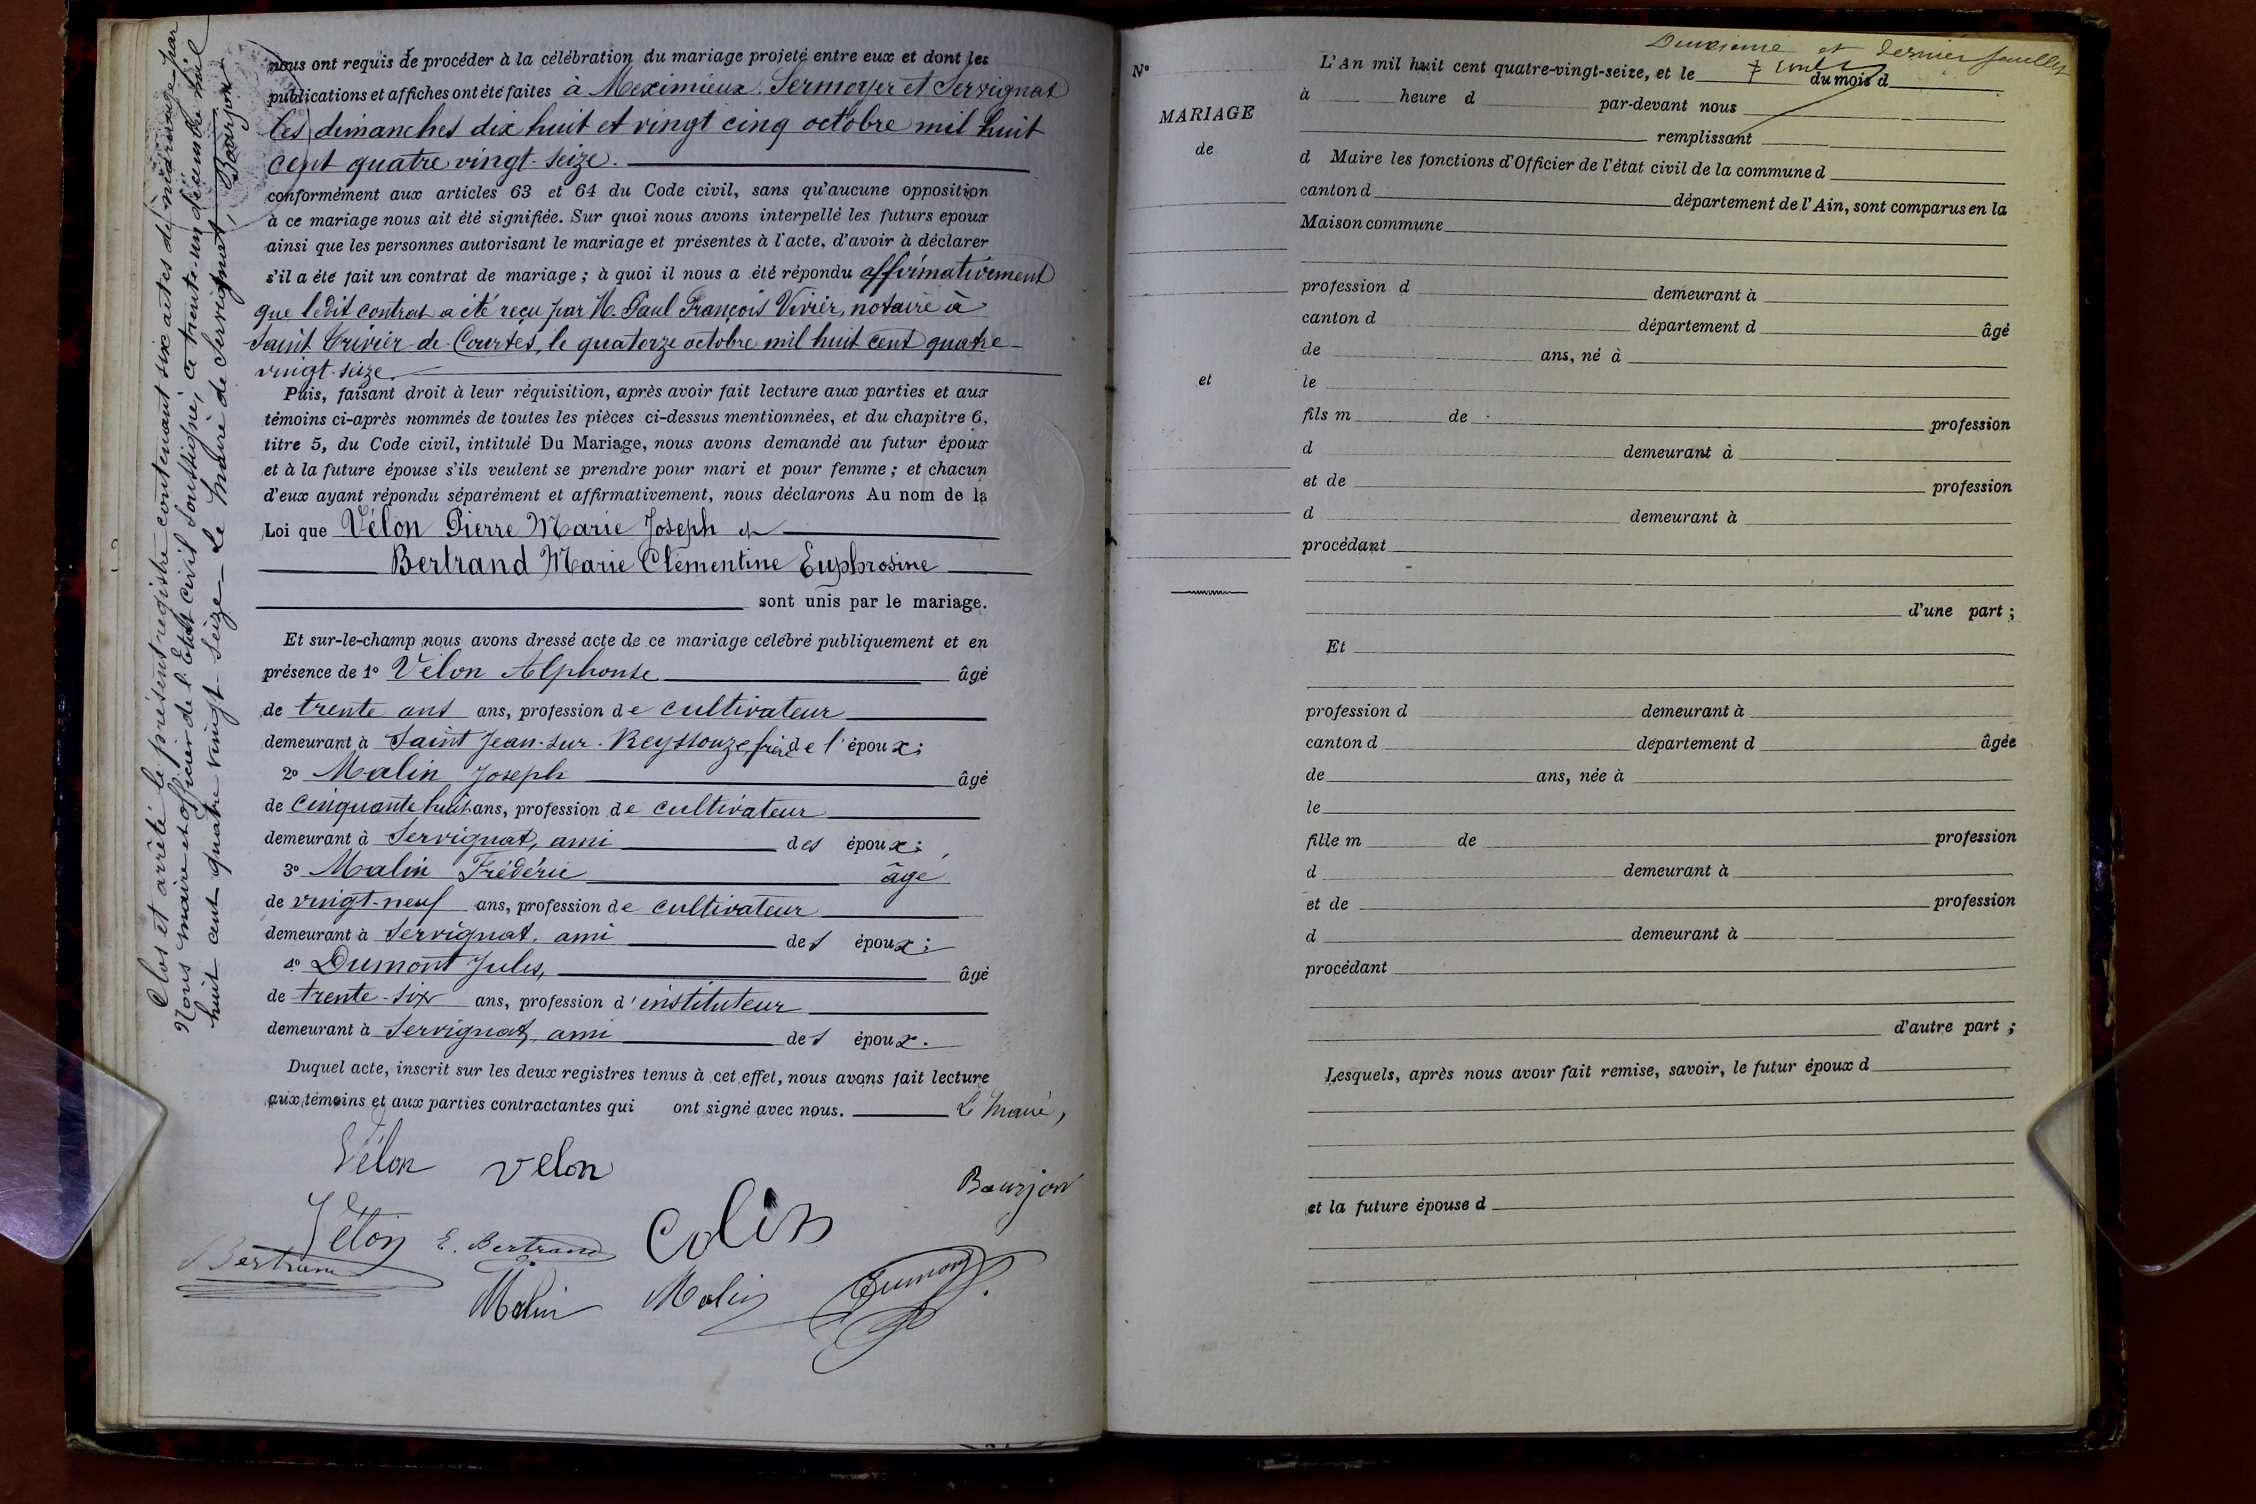 nous ont requis de procéder à la célébration du mariage projeté entre eux et dont les
publications et affiches ont été faites à Meximieux, Sermoyer et Servignat
les dimanches dix huit et vingt cinq octobre mil huit
cent quatre vingt-seize.
conformément aux articles 63 et 64 du Code civil, sans qu'aucune opposition
à ce mariage nous ait été signifiée. Sur quoi nous avons interpellé les futurs époux
ainsi que les personnes autorisant le mariage et présentes à l'acte, d'avoir à déclarer
s'il a été fait un contrat de mariage ; à quoi il nous a été répondu affirmativement
que ledit contrat a été reçu par M. Paul François Vivier, notaire à
Saint Trivier-de-Courtes, le quatorze octobre mil huit cent quatre
vingt-seize.
Puis, faisant droit à leur réquisition, après avoir fait lecture aux parties et aux
témoins ci-après nommés de toutes les pièces ci-dessus mentionnées, et du chapitre 6,
titre 5, du Code civil, intitulé Du Mariage, nous avons demandé au futur époux
et à la future épouse s'ils veulent se prendre pour mari et pour femme ; et chacun
d'eux ayant répondu séparément et affirmativement, nous déclarons Au nom de la
Loi que Vélon Pierre Marie Joseph et
Bertrand Marie Clémentine Euphrosine
sont unis par le mariage.
Et sur-le-champ nous avons dressé acte de ce mariage célébré publiquement et en
présence de 1° Vélon Alphonse âgé
de trente ans ans, profession de cultivateur
demeurant à Saint Jean-sur-Reyssouze, frère de l'époux ;
2° Malin Joseph âgé
de cinquante huit ans, profession de cultivateur
demeurant à Servignat, ami des époux ;
3° Malin Frédéric âgé
de vingt-neuf ans, profession de cultivateur
demeurant à Servignat, ami des époux ;
4° Dumont Jules, âgé
de trente-six ans, profession d'instituteur
demeurant à Servignat, ami des époux.
Duquel acte, inscrit sur les deux registres tenus à cet effet, nous avons fait lecture
aux témoins et aux parties contractantes qui ont signé avec nous. Le Maire,
Vélon velon
Bourjon
Vélon E. Bertrand Colin
Bertrand
Malin Malin Dumont
Clos et arrêté le présent registre contenant six actes de mariage par
Nous maire et officier de l'Etat civil soussigné, ce trente-un décembre mil
huit cent quatre vingt-seize - Le Maire de Servignat,
Bourjon
Deuxième et dernier feuillet
N°
MARIAGE
de
et
L'An mil huit cent quatre-vingt-seize, et le du mois d
à heure d par-devant nous
remplissant
d Maire les fonctions d'Officier de l'état civil de la commune d
canton d département de l'Ain, sont comparus en la
Maison commune
profession d demeurant à
canton d département d âgé
de ans, né à
le
fils m de profession
d demeurant à
et de profession
d demeurant à
procédant
d'une part ;
Et
profession d demeurant à
canton d département d âgée
de ans, née à
le
fille m de profession
d demeurant à
et de profession
d demeurant à
procédant
d'autre part ;
Lesquels, après nous avoir fait remise, savoir, le futur époux d
et la future épouse d